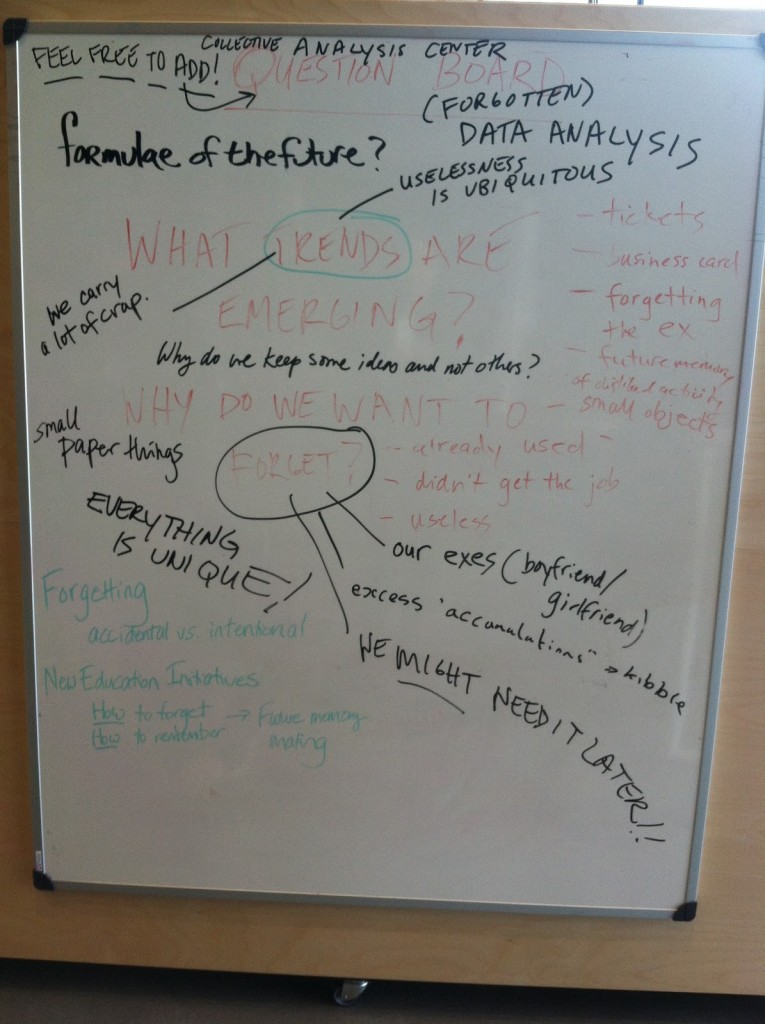 COLLECTIVE ANALYSIS CENTER
FEEL FREE TO ADD!
QUESTION BOARD
(FORGOTTEN)
DATA ANALYSIS
formulae of the future?
USELESSNESS
IS UBIQUITOUS
WHAT TRENDS ARE
EMERGING?
- tickets
- business card
- forgetting
the ex
- future memory
of activity
- small objects
we carry
a lot of crap.
Why do we keep some ideas and not others?
WHY DO WE WANT TO
FORGET?
small
paper things
- already used -
- didn't get the job
- useless
EVERYTHING
IS UNIQUE!
our exes (boyfriend/
girlfriend)
excess "accumulations" → kibble
WE MIGHT NEED IT LATER!!
Forgetting
accidental vs. intentional
New Education Initiatives
How to forget → Future memory
How to remember making